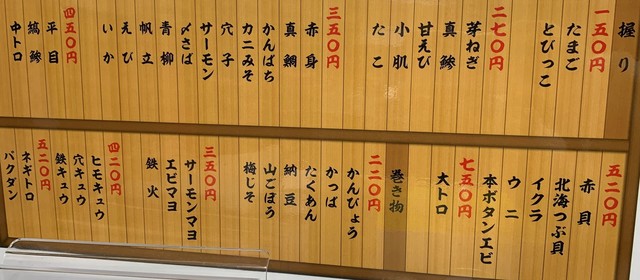 握り
一五〇円
たまご
とびっこ
二七〇円
芽ねぎ
真鯵
甘えび
小肌
たこ
三五〇円
赤身
真鯛
かんぱち
カニみそ
穴子
サーモン
〆さば
青柳
帆立
えび
いか
四五〇円
平目
縞鯵
中トロ
五二〇円
赤貝
北海つぶ貝
イクラ
ウニ
本ボタンエビ
七五〇円
大トロ
巻き物
二二〇円
かんぴょう
かっぱ
たくあん
納豆
山ごぼう
梅じそ
三五〇円
サーモンマヨ
エビマヨ
鉄火
四二〇円
ヒモキュウ
穴キュウ
鉄キュウ
五二〇円
ネギトロ
バクダン